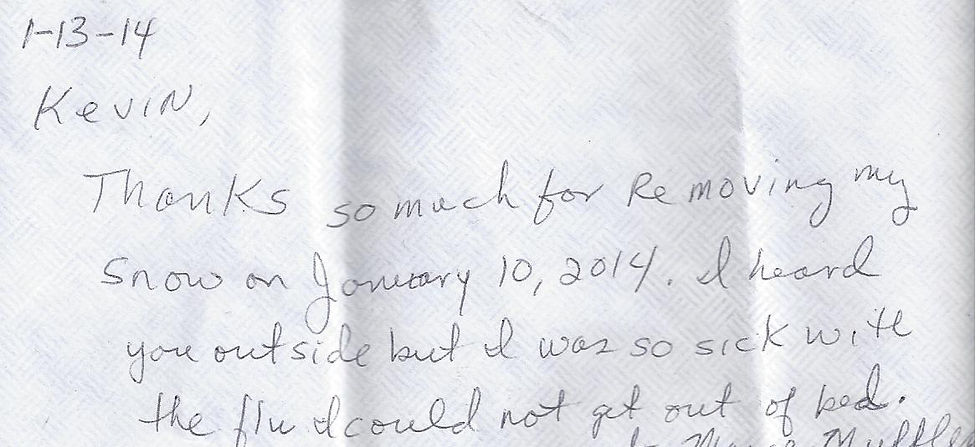 1-13-14
Kevin,
Thanks so much for Removing my
snow on January 10, 2014. I heard
you outside but I was so sick with
the flu I could not get out of bed.